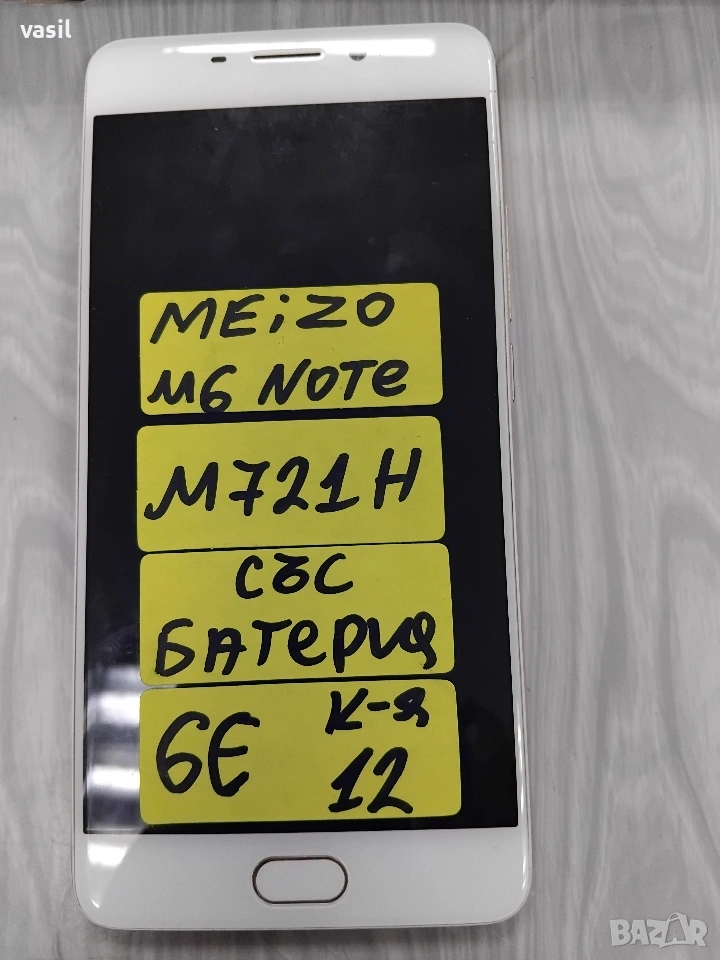 vasil
MEiZO
M6 NOTe
M721H
със
БАТерия
6E к-я
12
BAZAR